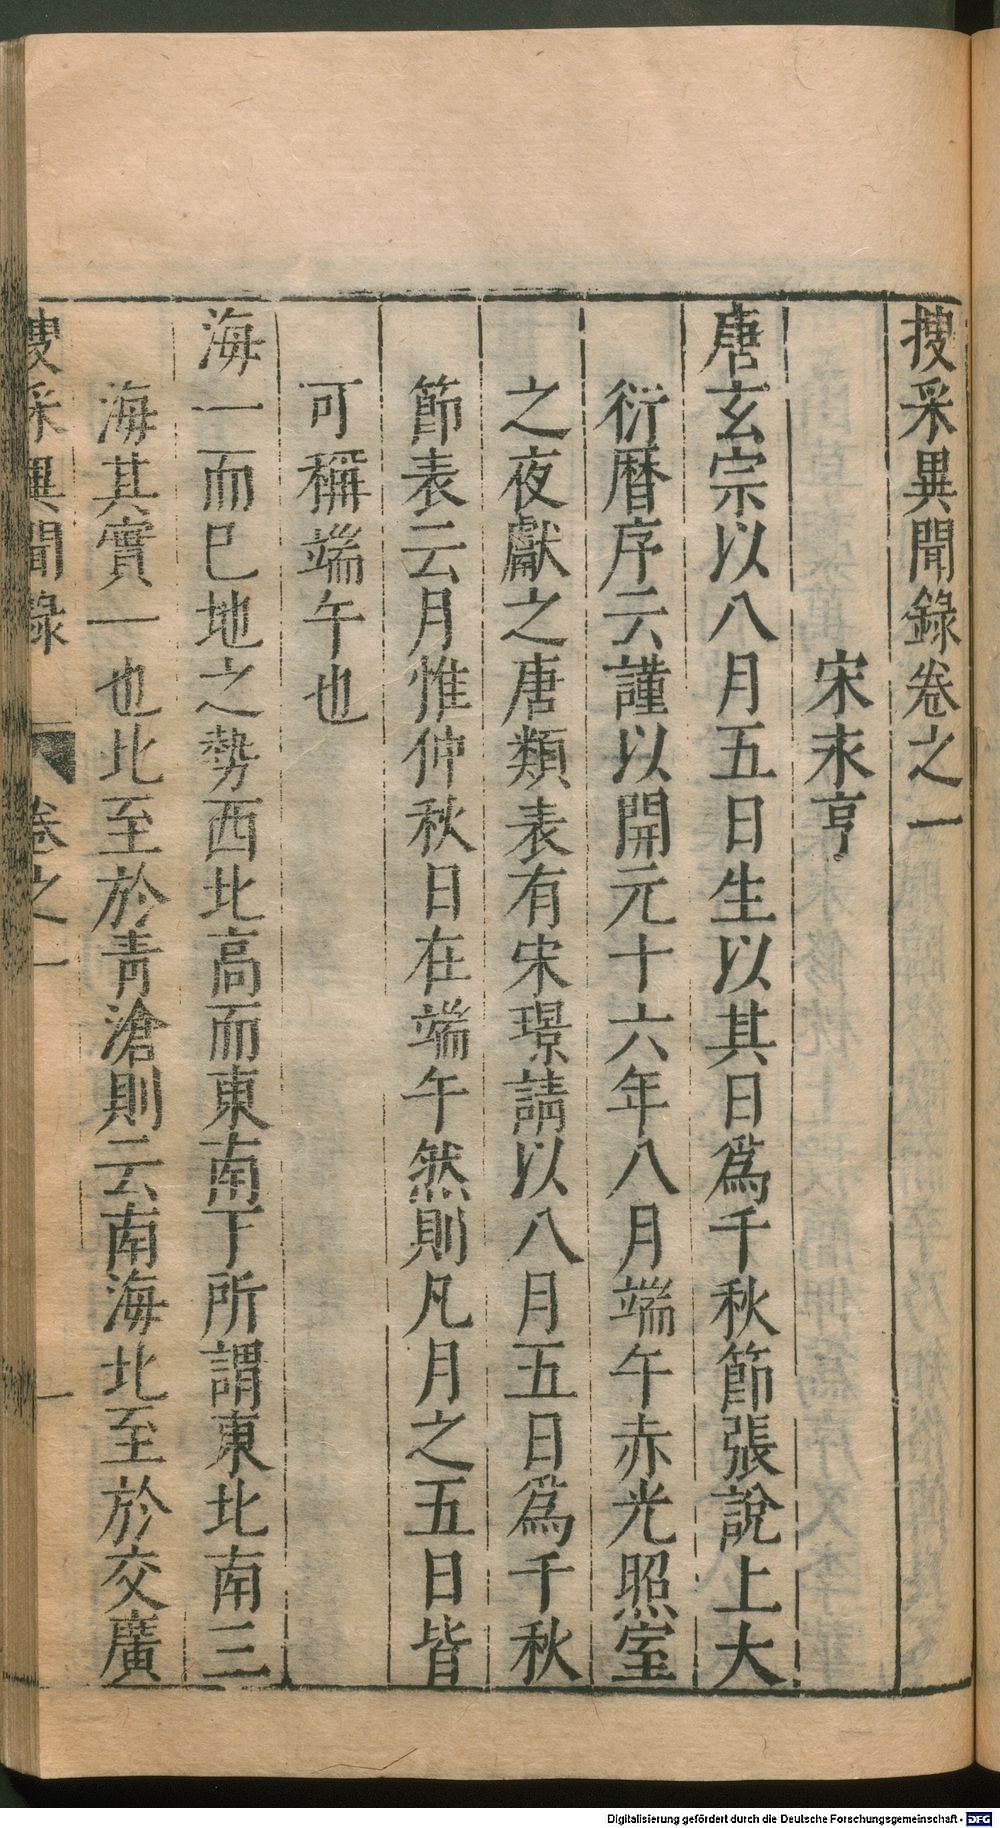 搜采異聞錄卷之一
宋末亨
唐玄宗以八月五日生以其日爲千秋節張說上大
衍曆序云謹以開元十六年八月端午赤光照室
之夜獻之唐類表有宋璟請以八月五日爲千秋
節表云月惟仲秋日在端午然則凡月之五日皆
可稱端午也
海一而巳地之勢西北高而東南下所謂東北南三
海其實一也北至於青滄則云南海北至於交廣
搜采異聞錄 卷之一 一
Digitalisierung gefördert durch die Deutsche Forschungsgemeinschaft - DFG